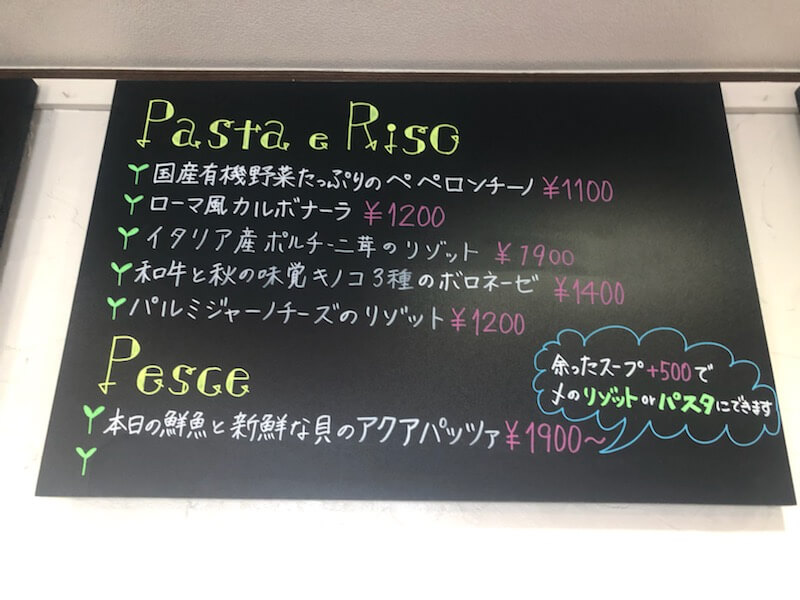 Pasta e Riso
国産有機野菜たっぷりのペペロンチーノ ¥1100
ローマ風カルボナーラ ¥1200
イタリア産ポルチーニ茸のリゾット ¥1900
和牛と秋の味覚キノコ3種のボロネーゼ ¥1400
パルミジャーノチーズのリゾット ¥1200
Pesce
本日の鮮魚と新鮮な貝のアクアパッツァ ¥1900〜
余ったスープ+500で
〆のリゾットorパスタにできます